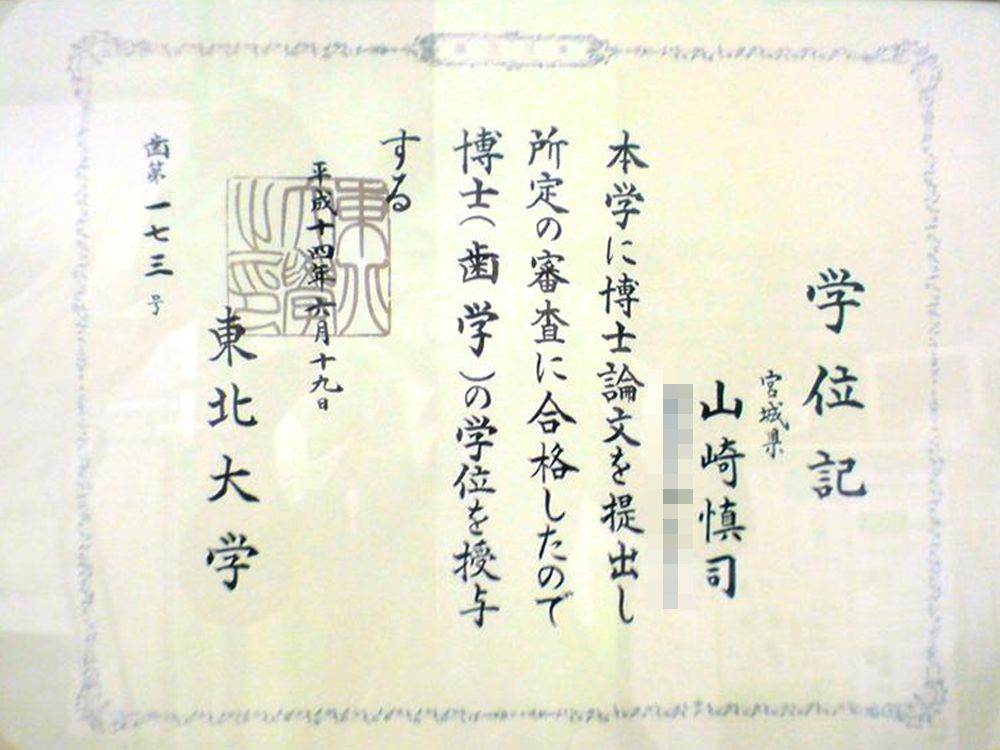 学位記
宮城県
山崎慎司
本学に博士論文を提出し
所定の審査に合格したので
博士(歯学)の学位を授与
する
平成十四年六月十九日
東北大学
歯第一七三号
東北大学之印